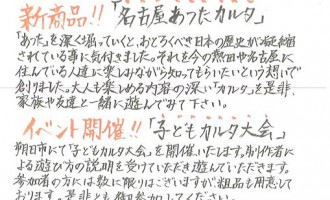 新商品!!「名古屋あつたカルタ」
「あった」を深く掘っていくと、おどろくべき日本の歴史が凝縮
されている事に気付きました。それを今の熱田や名古屋に
住んでいる人達に楽しみながら知ってもらいたいという想いで
創りました。大人も楽しめる内容の深い「カルタ」を是非、
家族や友達と一緒に遊んでみて下さい。
イベント開催!!「子どもカルタ大会」
朔日市にて「子どもカルタ大会」を開催いたします。制作者に
よる遊び方の説明を受けていただき遊んでいただきます。
参加者の方には数に限りはございますが粗品も用意して
おります。是非とも御参加してください。